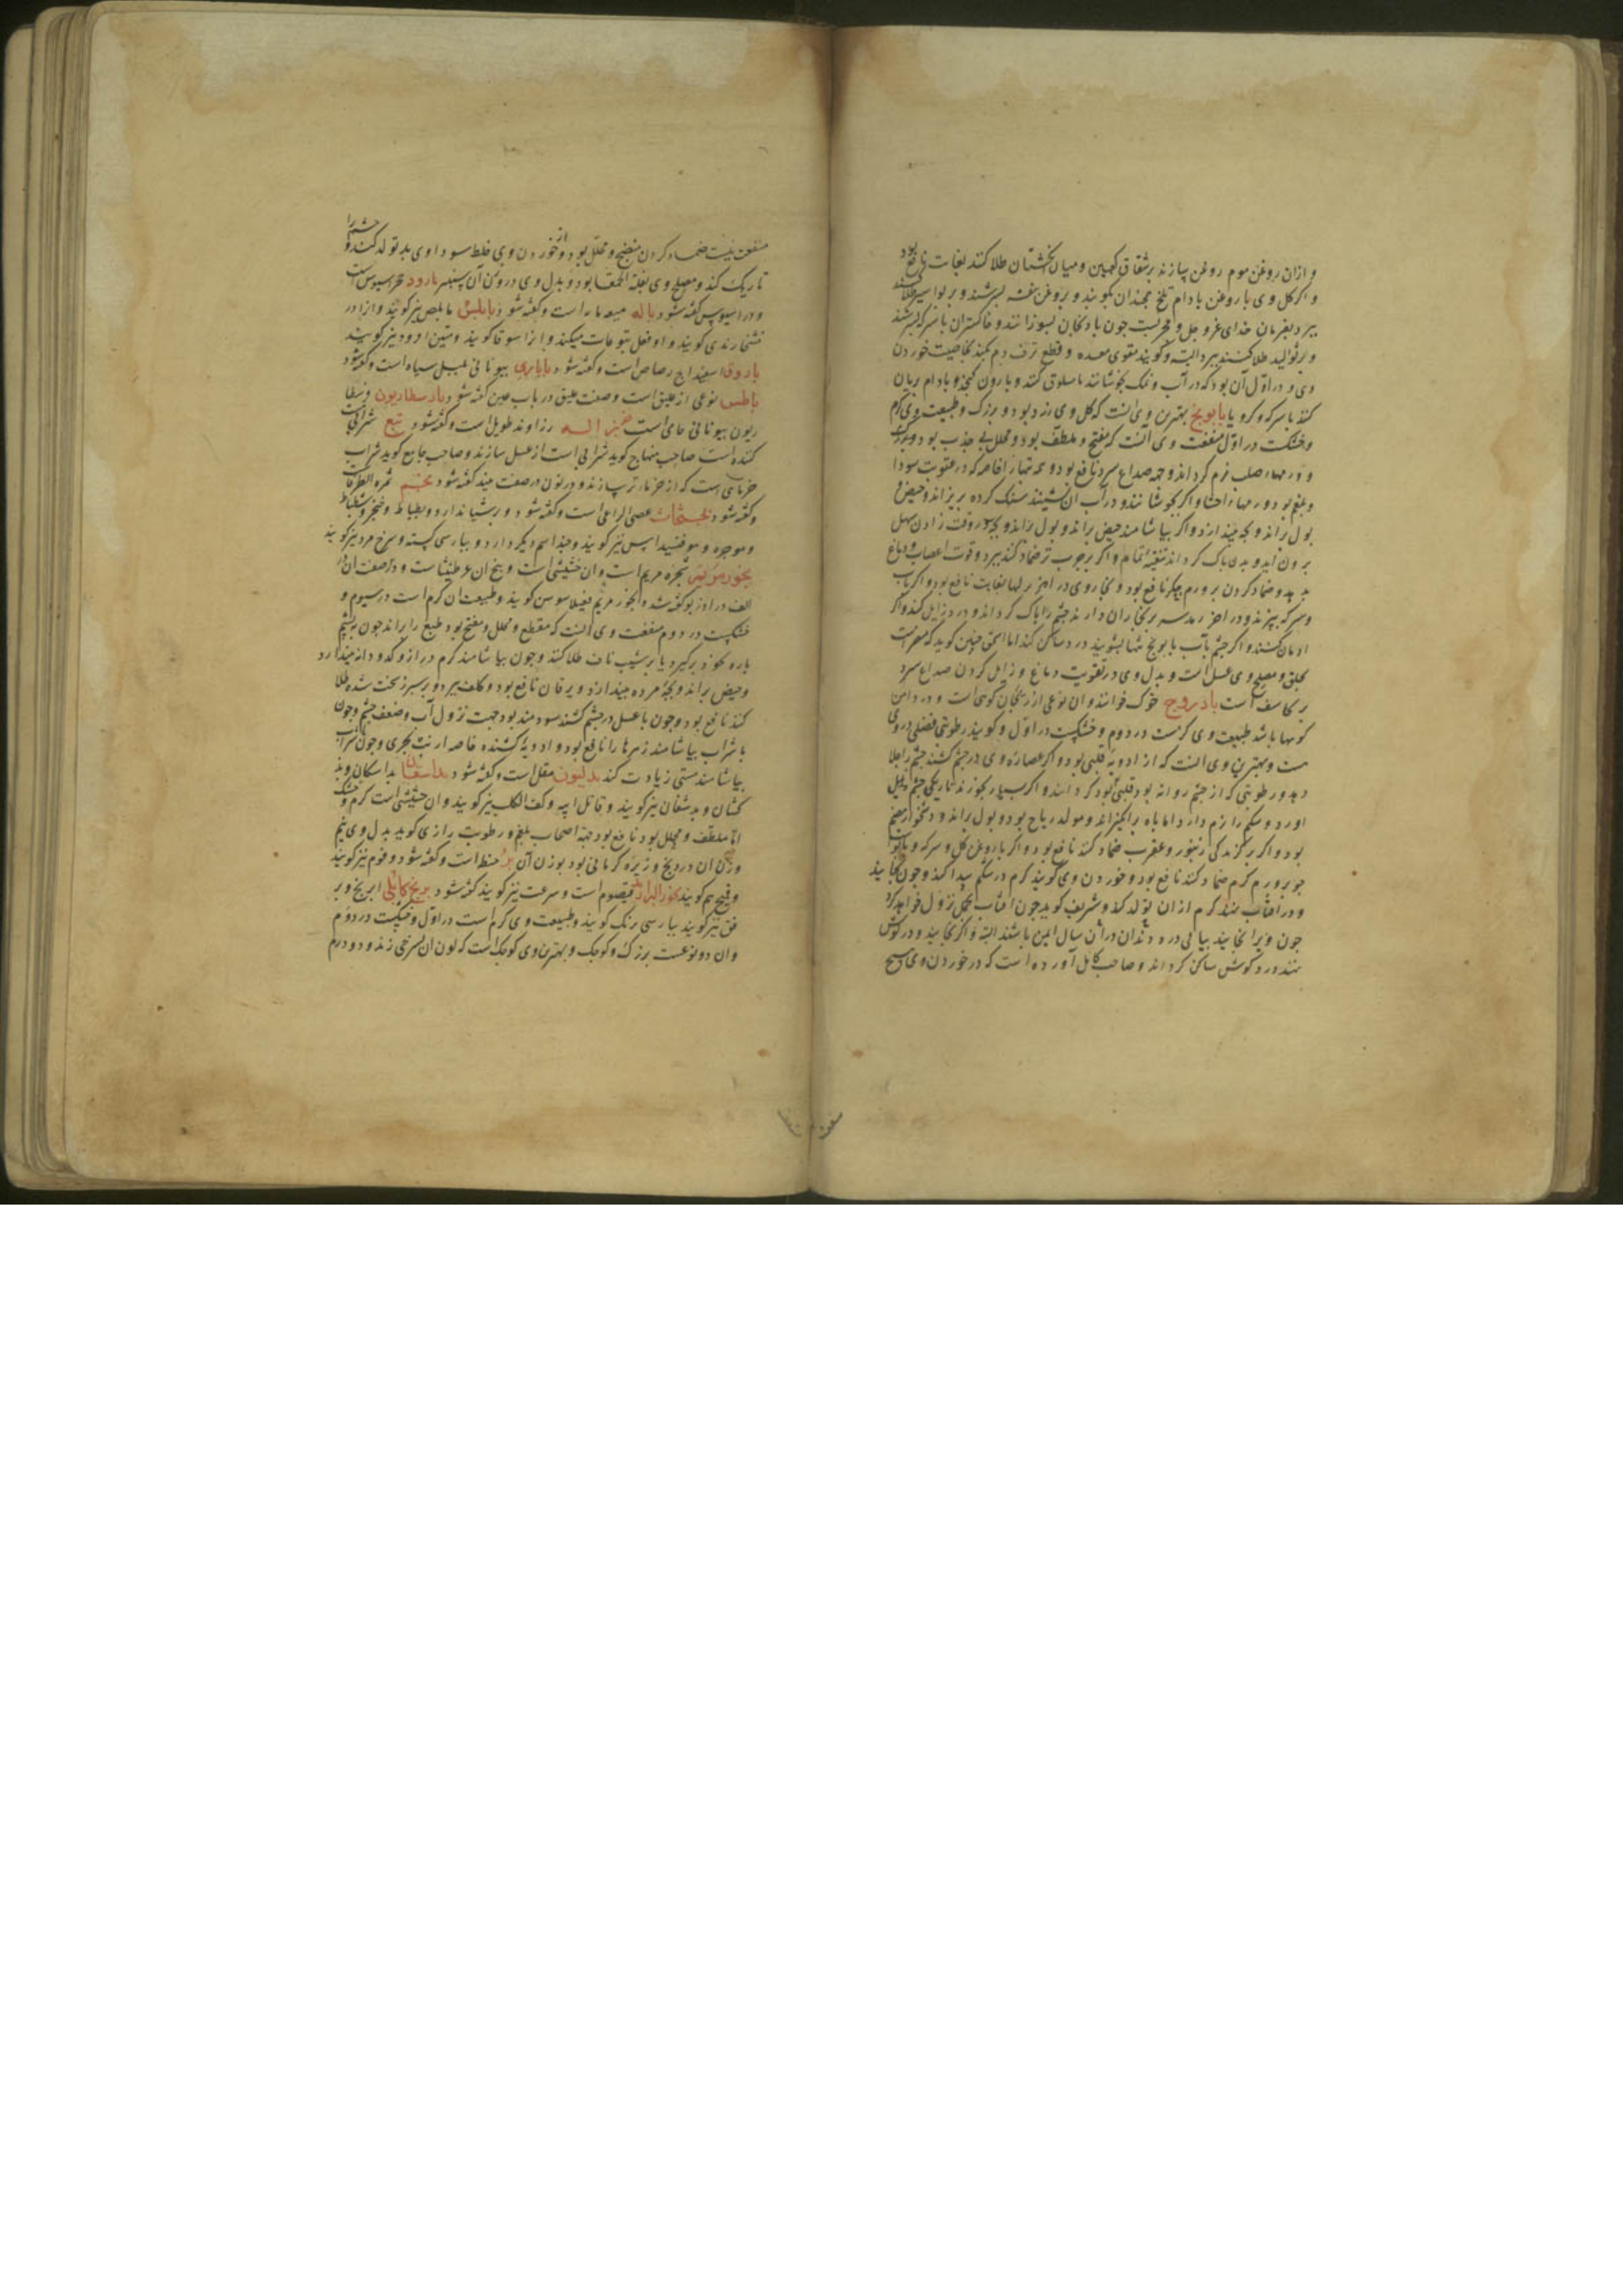 و ازان روغن موم روغن سازند بر شقاق کعبین و میان انکشتان طلا کنند بغایت نافع بود
و اکر کل وی با روغن بادام تلخ همچندان بکویند و بروغن بنفشه بسرشند و بر بواسیر طلا کنند
ببرد بفرمان خدای عز و جل و مجربست چون بادنجان بسوزانند و خاکستر ان با سرکه بسرشند
و بر ثوالیل طلا کنند ببرد البته و کویند مقوی معده و قطع نزف دم بکند بخاصیت خوردن
وی و در اول آن بود که در آب و نمک بجوشانند یا مسلوق کنند و با روغن کنجد و بادام بریان
کنند با سرکه و کرویا بابونج بهترین وی انست که کل وی زرد بود و بزرک و طبیعت وی کرم
و خشکست در اول منفعت وی آنست که مفتح و ملطف بود و محلل بی جذب بود
و ورمهاء صلب نرم کرداند و جهة صداع سرد نافع بود و همه تبها را خاصه که در عفونت سودا
و بلغم بود و ورمهاء احشا و اکر بجوشانند و در آب ان نشینند سنک کرده بریزاند و حیض و
بول براند و بچه بیندازد و اکر بیاشامند حیض براند و بول براند و بچه در وقت زادن سهل
برون اید و بدن پاک کرداند تنقیه تمام و اکر بر جرب تر ضماد کنند ببرد و قوت اعصاب و دماغ
بدهد و ضماد کردن بر ورم جکر نافع بود و بخار وی در اخر نزلها بغایت نافع بود و اکر باب
و سرکه بپزند و در اخر رمد سر بر بخار ان دارند چشم را پاک کرداند و درد زایل کند و اکر
ادمان کنند و اکر چشم بآب بابونج تنها بشویند درد ساکن کند اما اسحق حنین کوید که مضرست
بحلق و مصلح وی عسل است و بدل وی در تقویت دماغ و زایل کردن صداع سرد
برنجاسف است بادروج حوک خوانند و ان نوعی از ریحان کوهی است و در دامن
کوهها باشد طبیعت وی کرمست در دوم و خشکیست در اول و کویند رطوبتی فضلی در وی
هست و بهترین وی انست که از ادویه قلبی بود و اکر عصاره وی در چشم کشند چشم را جلا
دهد و رطوبتی که از چشم روانه بود قلبی بود کرداند و اکر بسیار بخورند تاریکی چشم
اورد و شکم را نرم دارد اما باه برانکیزاند و مولد ریاح بود و بول براند و دشخوار هضم
بود و اکر بر کزیدکی زنبور و عقرب ضماد کنند نافع بود و اکر با روغن کل و سرکه و با سویق
جو بر ورم کرم ضماد کنند نافع بود و خوردن وی کویند کرم در شکم پیدا کند و چون بخایند
و در افتاب نهند کرم از ان تولد کند و شریف کوید چون افتاب بحمل نزول خواهد کرد
چون ویرا بخایند بیابی درد دندان در آن سال ایمن باشند البته و اکر بخایند و در کوش
نهند درد کوش ساکن کرداند و صاحب کامل آورده است که در خوردن وی هیچ
منفعت نیست ضماد کردن منضج و محلل بود و از خوردن وی خلط سوداوی بد تولد کند و چشم را
تاریک کند و مصلح وی بقلة الحمقا بود و بدل وی در وزن آن سیسنبر بارود حجر اسیوس است
و در اسیوس کفته شود باله میعه مایه است و کفته شود بابلس مابلص نیز کویند و انرا در
خشخاش زبدی کویند و او فعل یتوعات میکند و انرا سوقا کویند و متین اردود نیز کویند
باروق اسفیداج رصاص است و کفته شود باباری بیونانی فلفل سیاه است و کفته شود
باطس نوعی از علیق است و صفت علیق در باب عین کفته شود بادسطاریون و نیطا
ریون بیونانی حامی است زراوند طویل است و کفته شود تبع شرابی
کننده است صاحب منهاج کوید شرابی است از عسل سازند و صاحب جامع کوید شراب
خرمایی است که از خرماء تر سازند و در نون در صفت نبیذ کفته شود ثمرة الطرفا
و کفته شود عصی الراعی است و کفته شود و برشیاندارد و بطباط و
و موجره و نیز کویند و چند اسم دیکر دارد و بپارسی کسته و سرخ مرد نیز کویند
بخور مریم شجره مریم است و ان حشیشی است و بیخ ان عرطنیثا است و در صفت ان در
الف در اذربو کفته شد و بخور مریم فیلاموس کویند و طبیعت ان کرم است در سیوم و
خشکیست در دوم منفعت وی آنست که مقطع و محلل و مفتح بود طبع را براند چون به پشم
پاره بخود برکیرد یا بر شیب ناف طلا کنند و چون بیاشامند کرم دراز و کدو دانه بیندازد
و حیض براند و بچه مرده بیندازد و یرقان نافع بود و کلف ببرد و بر سپرز سخت شده طلا
کنند نافع بود و چون با عسل در چشم کشند سودمند بود جهت نزول آب و ضعف چشم و چون
با شراب بیاشامند زهرها را نافع بود و ادویه کشنده خاصه ارنب بحری و چون شراب
بیاشامند مستی زیادت کند بدلیون مقل است و کفته شود بداسقان بداسکان و بد
کشان و بدشغان نیز کویند و قاتل ابیه و کف الکلب نیز کویند و ان حشیشی است کرم و خشک
اما ملطف و محلل بود نافع بود جهة اصحاب بلغم و رطوبت رازی کوید بدل وی نیم
وزن ان درونج و زیره کرمانی بود بوزن آن بر حنطه است و کفته شود و فوم نیز کویند
و قمح هم کویند بخور البرابر قیصوم است و سرعت نیز کویند کفته شود برنج کابلی ابرنج و بر
نق نیز کویند بپارسی برنک کویند و طبیعت وی کرم است در اول و خشکست در دوم
و ان دو نوعست بزرک و کوچک و بهترین وی کوچک است که لون ان بسرخی زند و دو درم